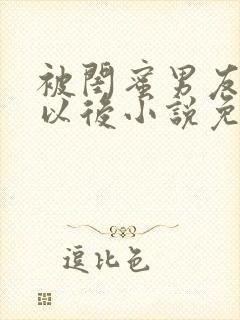 被閨蜜男友
以後小説免
逗比色